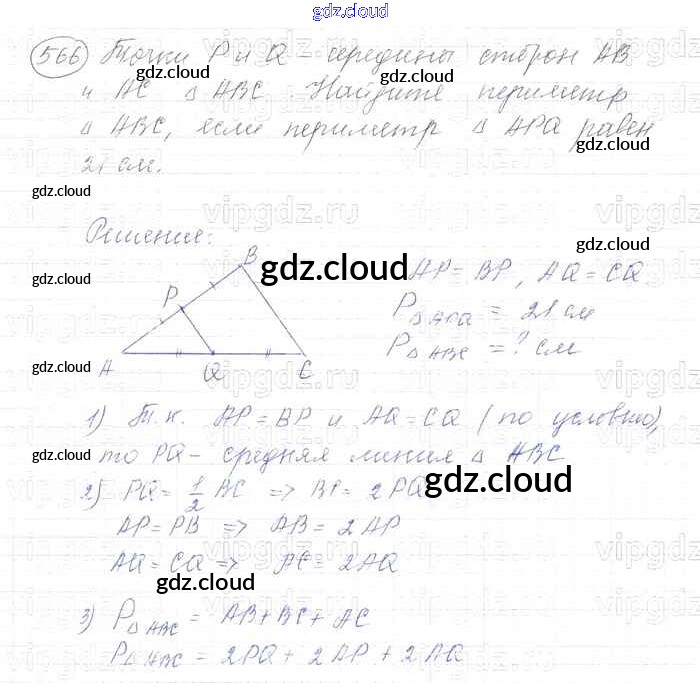 gdz.cloud
566 Точки P и Q – середины сторон AB
gdz.cloud
и AC △ ABC. Найдите периметр
gdz.cloud
△ ABC, если периметр △ APQ равен
gdz.cloud
21 см.
gdz.cloud
vipgdz.ru
Решение:
gdz.cloud
B
gdz.cloud
AP = BP, AQ = CQ
gdz.cloud
P
P△APQ = 21 см
P△ABC = ? см
gdz.cloud
A Q C
1) Т.к. AP = BP и AQ = CQ (по условию),
gdz.cloud
то PQ – средняя линия △ ABC
gdz.cloud
2) PQ = 1/2 BC => BP = 2PQ
AP = PB => AB = 2AP
AQ = CQ => AC = 2AQ
gdz.cloud
3) P△ABC = AB + BC + AC
gdz.cloud
P△ABC = 2PQ + 2AP + 2AQ